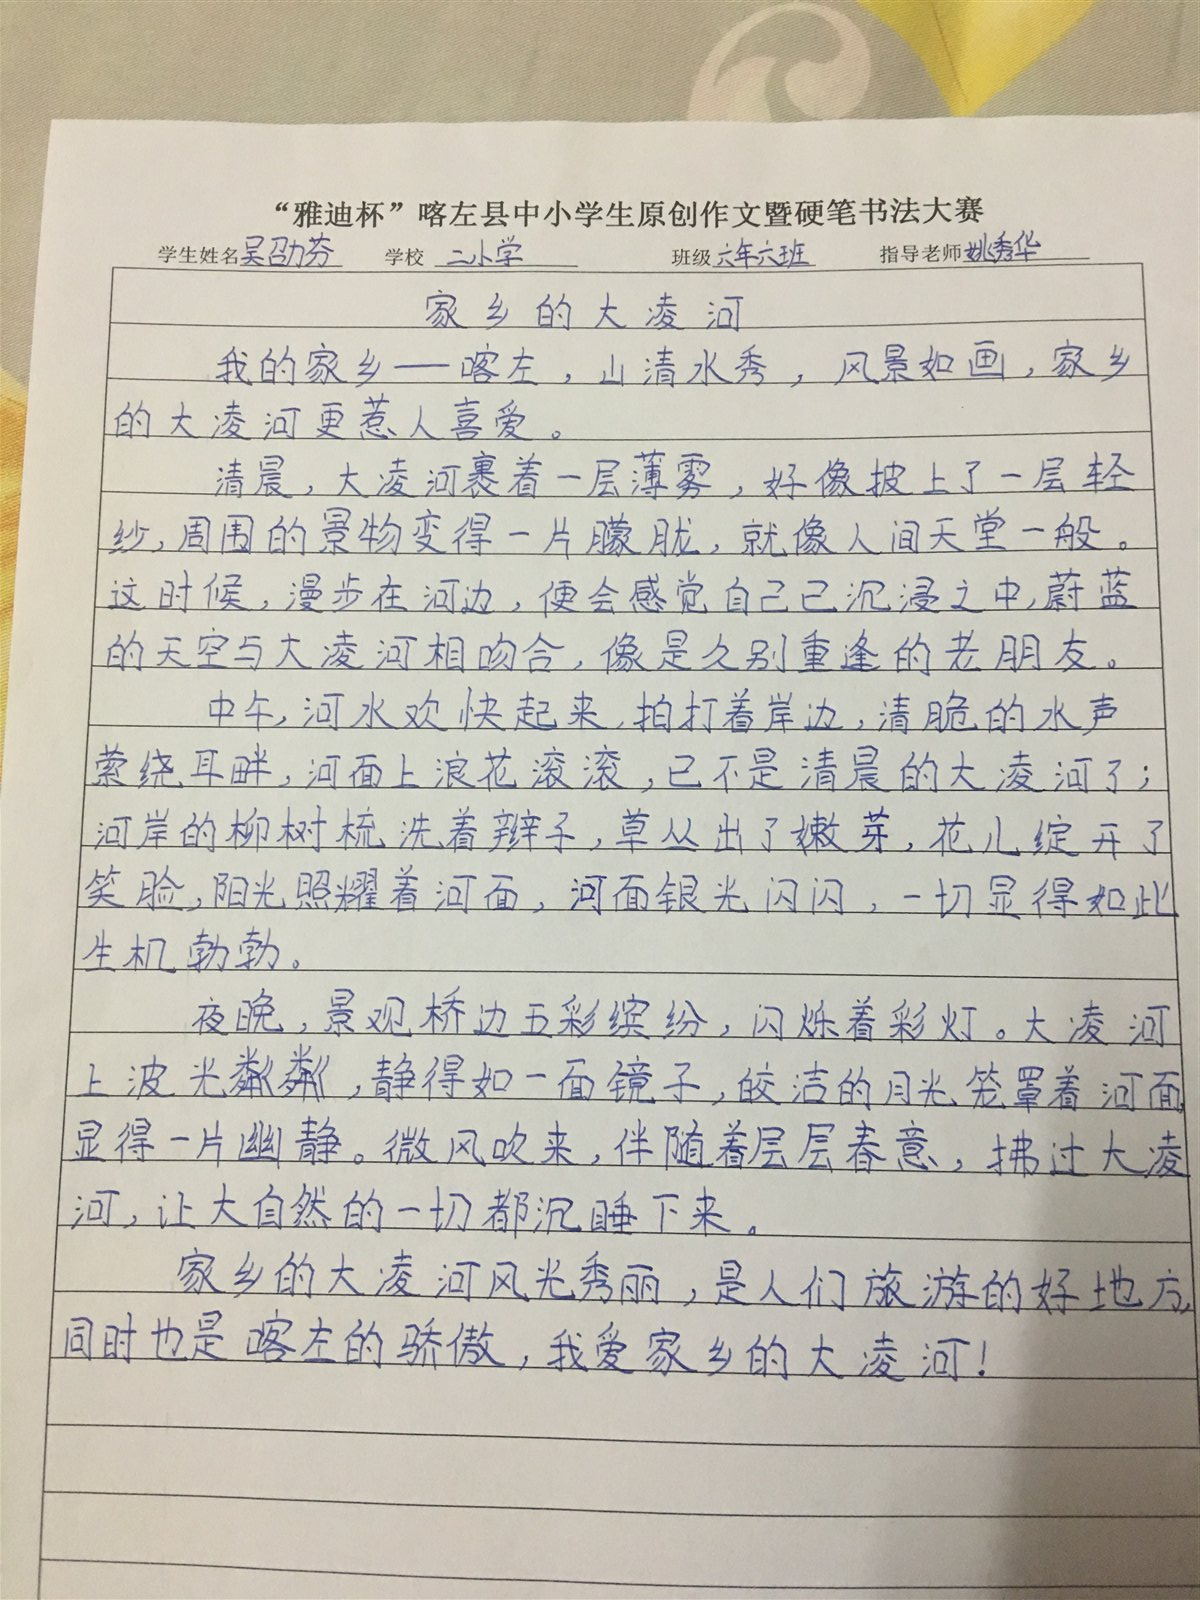 “雅迪杯”喀左县中小学生原创作文暨硬笔书法大赛
学生姓名吴劭芬 学校 二小学 班级六年六班 指导老师姚秀华
家乡的大凌河
我的家乡——喀左，山清水秀，风景如画，家乡
的大凌河更惹人喜爱。
清晨，大凌河裹着一层薄雾，好像披上了一层轻
纱，周围的景物变得一片朦胧，就像人间天堂一般。
这时候，漫步在河边，便会感觉自己已沉浸之中，蔚蓝
的天空与大凌河相吻合，像是久别重逢的老朋友。
中午，河水欢快起来，拍打着岸边，清脆的水声
萦绕耳畔，河面上浪花滚滚，已不是清晨的大凌河了；
河岸的柳树梳洗着辫子，草丛出了嫩芽，花儿绽开了
笑脸，阳光照耀着河面，河面银光闪闪，一切显得如此
生机勃勃。
夜晚，景观桥边五彩缤纷，闪烁着彩灯。大凌河
上波光粼粼，静得如一面镜子，皎洁的月光笼罩着河面
显得一片幽静。微风吹来，伴随着层层春意，拂过大凌
河，让大自然的一切都沉睡下来。
家乡的大凌河风光秀丽，是人们旅游的好地方，
同时也是喀左的骄傲，我爱家乡的大凌河！